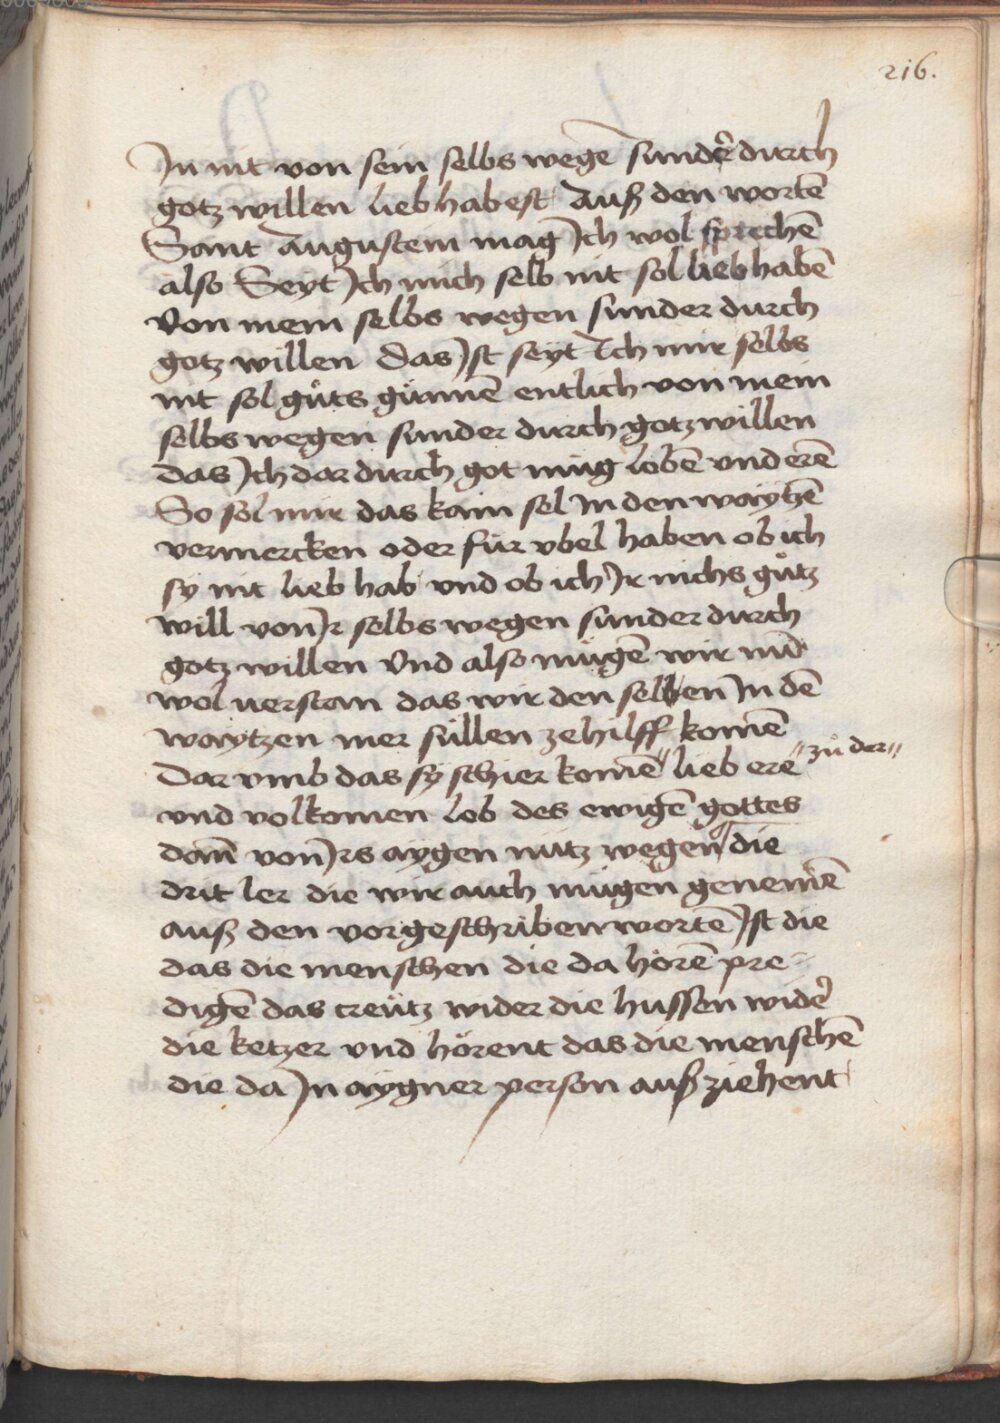 216.
In nit von sein selbs wegē sundr̄ durch
gotz willen lieb habest Auß den wortē
Sant Augustein mag Ich wol sprechē
also Seyt Ich mich selb nit sol lieb habē
Von mein selbs wegen sunder durch
gotz willen das Ist seyt Ich mir selbs
nit sol gůts gūnnē entlich von mein
selbs wegen sunder durch gotz willen
das Ich dar durch got müg lobē vnd erē
So sol mir das kain sel In den waytzē
vermercken oder für vbel haben ob ich
sy nit lieb hab vnd ob ich Ir nichs gůtz
will von Ir selbs wegen sunder durch
gotz willen Vnd also mügē wir nun̄
wol uerstan das wir den selben In dē
waytzen mer süllen ze hilff komē
Dar vmb das sy schier komē " lieb erē " zů der "
vnd volkomen lob des ewigē gottes
dan̄ von Irs aygen nutz wegen die
drit ler die wir auch mügen genemē
auß den vorgeschriben wortē Ist die
das die menschen die da hörē pre=
digē das creütz wider die hussen widr̄
die ketzer vnd hörent das die menschē
die da In aygner person auß ziehent